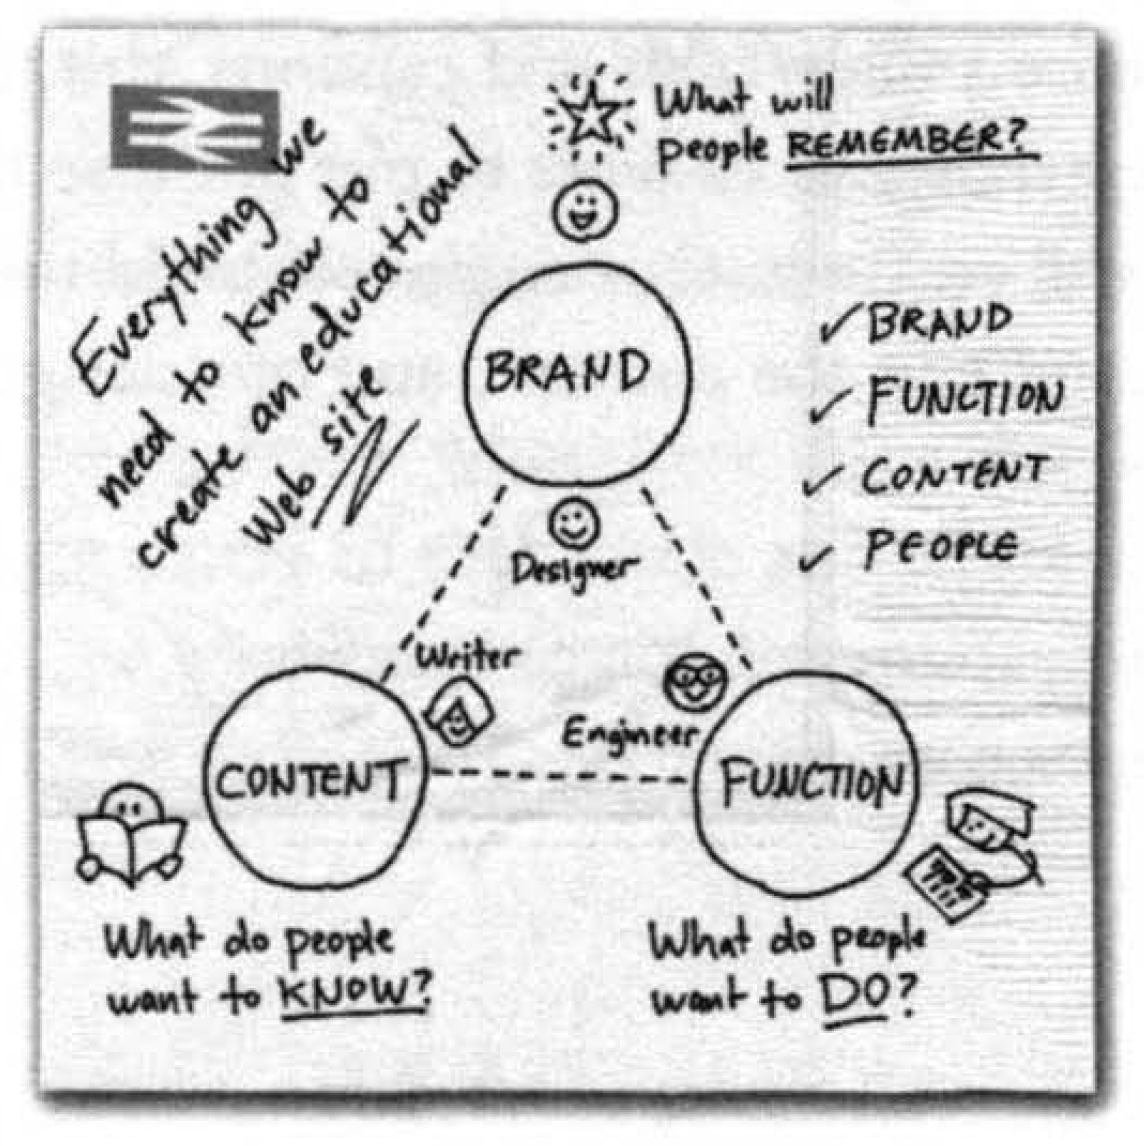 Everything we
need to know to
create an educational
Web site
What will
people REMEMBER?
BRAND
Designer
BRAND
FUNCTION
CONTENT
PEOPLE
Writer
Engineer
CONTENT
FUNCTION
What do people
want to KNOW?
What do people
want to DO?